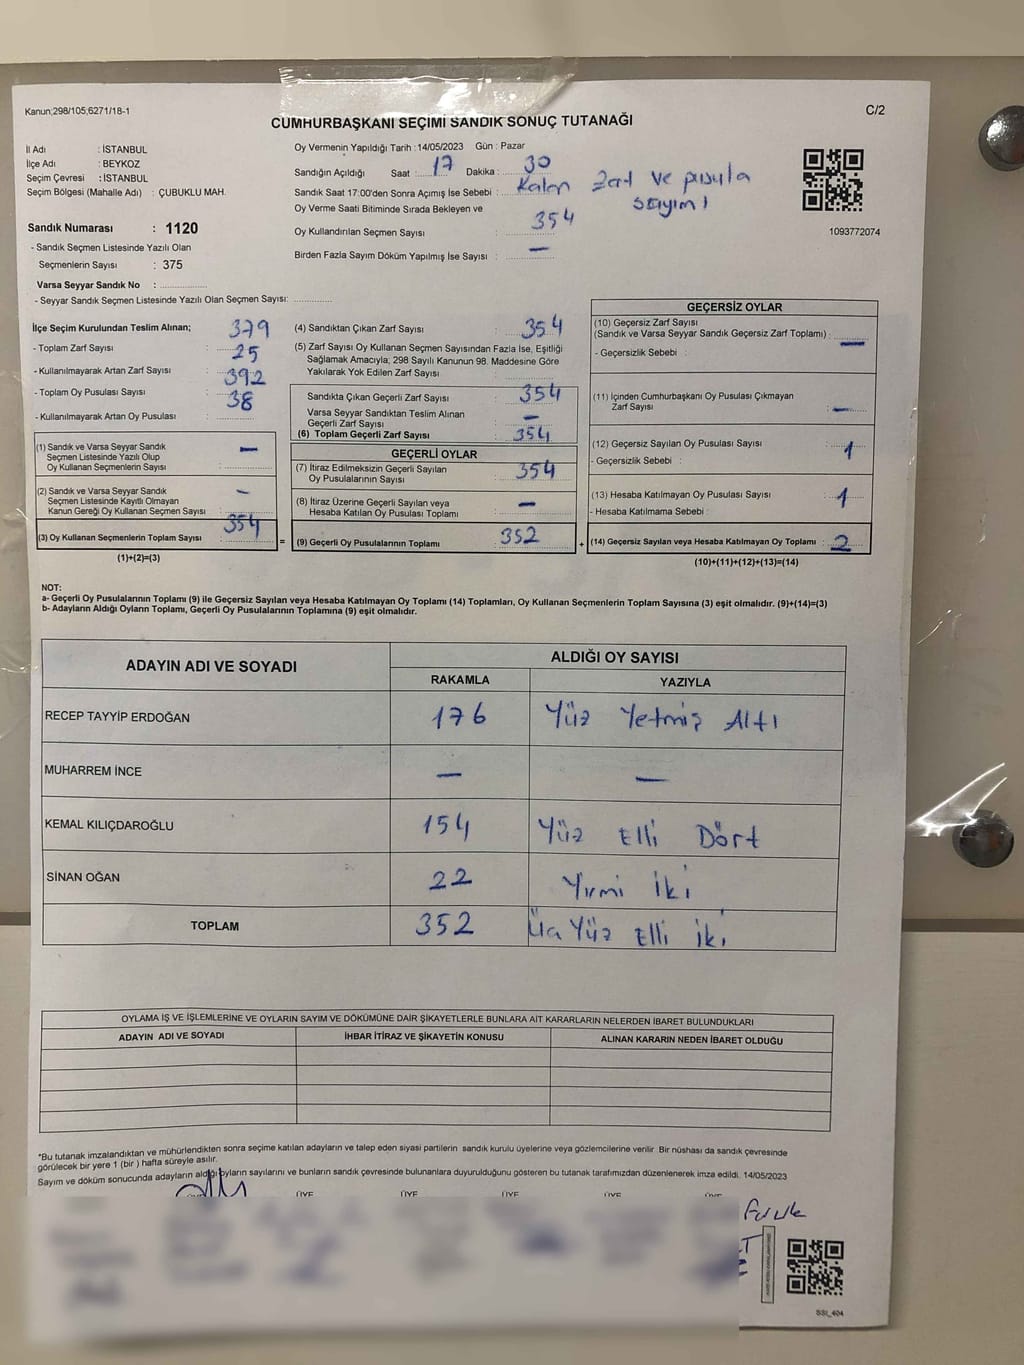 Kanun;298/105;6271/18-1
C/2
CUMHURBAŞKANI SEÇİMİ SANDIK SONUÇ TUTANAĞI
İl Adı : İSTANBUL
İlçe Adı : BEYKOZ
Seçim Çevresi : İSTANBUL
Seçim Bölgesi (Mahalle Adı) : ÇUBUKLU MAH.
Sandık Numarası : 1120
- Sandık Seçmen Listesinde Yazılı Olan
Seçmenlerin Sayısı : 375
Varsa Seyyar Sandık No :
- Seyyar Sandık Seçmen Listesinde Yazılı Olan Seçmen Sayısı:
Oy Vermenin Yapıldığı Tarih :14/05/2023 Gün : Pazar
Sandığın Açıldığı Saat : 17 Dakika : 30
Sandık Saat 17:00'den Sonra Açımış İse Sebebi : Kalan Zarf ve pusula
sayımı
Oy Verme Saati Bitiminde Sırada Bekleyen ve
Oy Kullandırılan Seçmen Sayısı : 354
Birden Fazla Sayım Döküm Yapılmış İse Sayısı : —
1093772074
İlçe Seçim Kurulundan Teslim Alınan;
- Toplam Zarf Sayısı : 379
- Kullanılmayarak Artan Zarf Sayısı : 25
- Toplam Oy Pusulası Sayısı : 392
- Kullanılmayarak Artan Oy Pusulası : 38
(1) Sandık ve Varsa Seyyar Sandık
Seçmen Listesinde Yazılı Olup
Oy Kullanan Seçmenlerin Sayısı : —
(2) Sandık ve Varsa Seyyar Sandık
Seçmen Listesinde Kayıtlı Olmayan
Kanun Gereği Oy Kullanan Seçmen Sayısı : —
(3) Oy Kullanan Seçmenlerin Toplam Sayısı : 354
(1)+(2)=(3)
=
(4) Sandıktan Çıkan Zarf Sayısı : 354
(5) Zarf Sayısı Oy Kullanan Seçmen Sayısından Fazla İse, Eşitliği
Sağlamak Amacıyla; 298 Sayılı Kanunun 98. Maddesine Göre
Yakılarak Yok Edilen Zarf Sayısı :
Sandıkta Çıkan Geçerli Zarf Sayısı : 354
Varsa Seyyar Sandıktan Teslim Alınan
Geçerli Zarf Sayısı : —
(6) Toplam Geçerli Zarf Sayısı : 354
GEÇERLİ OYLAR
(7) İtiraz Edilmeksizin Geçerli Sayılan
Oy Pusulalarının Sayısı : 354
(8) İtiraz Üzerine Geçerli Sayılan veya
Hesaba Katılan Oy Pusulası Toplamı : —
(9) Geçerli Oy Pusulalarının Toplamı : 352
+
GEÇERSİZ OYLAR
(10) Geçersiz Zarf Sayısı
(Sandık ve Varsa Seyyar Sandık Geçersiz Zarf Toplamı) : —
- Geçersizlik Sebebi :
(11) İçinden Cumhurbaşkanı Oy Pusulası Çıkmayan
Zarf Sayısı : —
(12) Geçersiz Sayılan Oy Pusulası Sayısı : 1
- Geçersizlik Sebebi :
(13) Hesaba Katılmayan Oy Pusulası Sayısı : 1
- Hesaba Katılmama Sebebi :
(14) Geçersiz Sayılan veya Hesaba Katılmayan Oy Toplamı : 2
(10)+(11)+(12)+(13)=(14)
NOT:
a- Geçerli Oy Pusulalarının Toplamı (9) ile Geçersiz Sayılan veya Hesaba Katılmayan Oy Toplamı (14) Toplamları, Oy Kullanan Seçmenlerin Toplam Sayısına (3) eşit olmalıdır. (9)+(14)=(3)
b- Adayların Aldığı Oyların Toplamı, Geçerli Oy Pusulalarının Toplamına (9) eşit olmalıdır.
ADAYIN ADI VE SOYADI ALDIĞI OY SAYISI
RAKAMLA YAZIYLA
RECEP TAYYİP ERDOĞAN 176 Yüz Yetmiş Altı
MUHARREM İNCE — —
KEMAL KILIÇDAROĞLU 154 Yüz Elli Dört
SİNAN OĞAN 22 Yirmi İki
TOPLAM 352 Üç Yüz Elli İki
OYLAMA İŞ VE İŞLEMLERİNE VE OYLARIN SAYIM VE DÖKÜMÜNE DAİR ŞİKAYETLERLE BUNLARA AİT KARARLARIN NELERDEN İBARET BULUNDUKLARI
ADAYIN ADI VE SOYADI İHBAR İTİRAZ VE ŞİKAYETİN KONUSU ALINAN KARARIN NEDEN İBARET OLDUĞU
*Bu tutanak imzalandıktan ve mühürlendikten sonra seçime katılan adayların ve talep eden siyasi partilerin sandık kurulu üyelerine veya gözlemcilerine verilir. Bir nüshası da sandık çevresinde
görülecek bir yere 1 (bir ) hafta süreyle asılır.
Sayım ve döküm sonucunda adayların aldığı oyların sayılarını ve bunların sandık çevresinde bulunanlara duyurulduğunu gösteren bu tutanak tarafımızdan düzenlenerek imza edildi. 14/05/2023
ÜYE ÜYE ÜYE ÜYE ÜYE
SSI_404